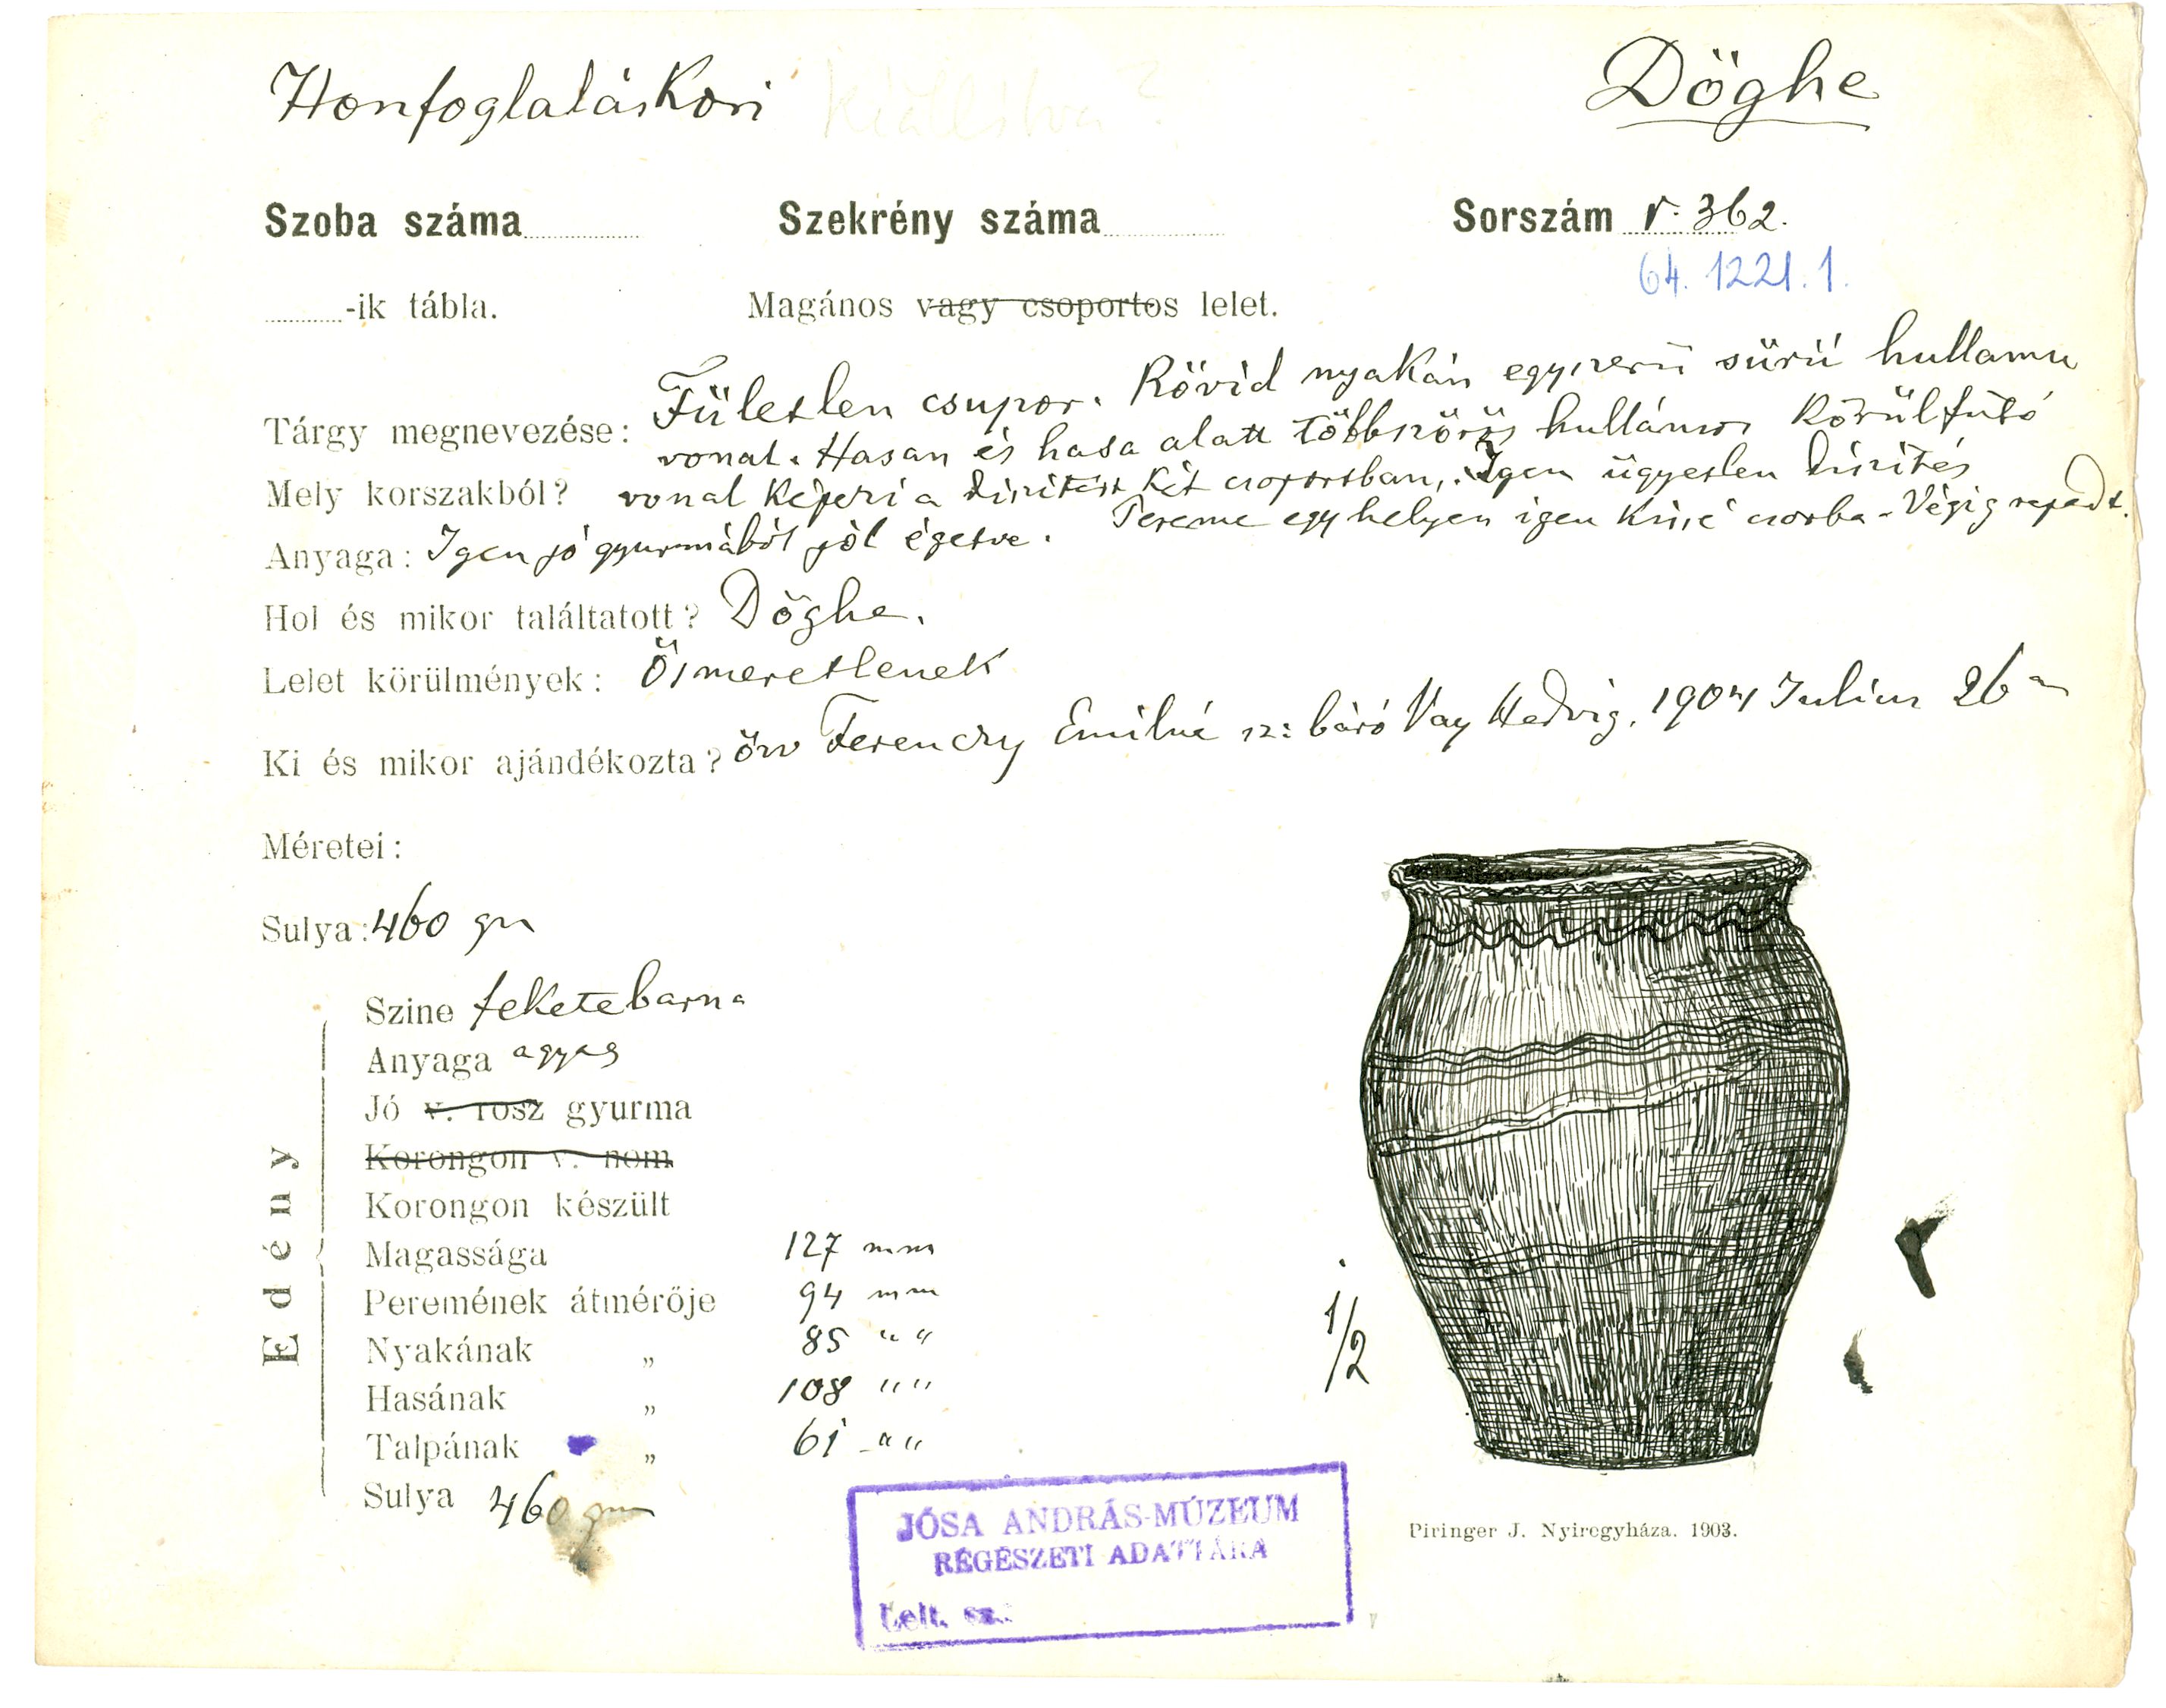 Honfoglaláskori Kiállítva? Döghe
Szoba száma Szekrény száma Sorszám r. 362.
64. 1221. 1.
-ik tábla. Magános vagy csoportos lelet.
Tárgy megnevezése: Fületlen csupor. Rövid nyakán egyszerü sürü hullamu
vonal. Hasan és hasa alatt többszörös hullámos körülfutó
Mely korszakból? vonal képezi a diszitést két csoportban, Igen ügyetlen diszités
Anyaga: Igen jó gyurmából jól égetve. Pereme egy helyen igen kissé csorba - Végig repedt.
Hol és mikor találtatott? Döghe.
Lelet körülmények: Ösmeretlenek
Ki és mikor ajándékozta? özv Ferenczy Emilné sz: báró Vay Hedvig. 1904 Julius 26 án
Méretei:
Sulya: 460 gm
Edény
Szine feketebarna
Anyaga agyag
Jó v. rosz gyurma
Korongon v. nem
Korongon készült
Magassága 127 mm
Peremének átmérője 94 mm
Nyakának „ 85 " "
Hasának „ 108 " "
Talpának „ 61 " "
Sulya 460 gm
1/2
JÓSA ANDRÁS-MÚZEUM
RÉGÉSZETI ADATTÁRA
Lelt. sz.:
Piringer J. Nyiregyháza. 1903.